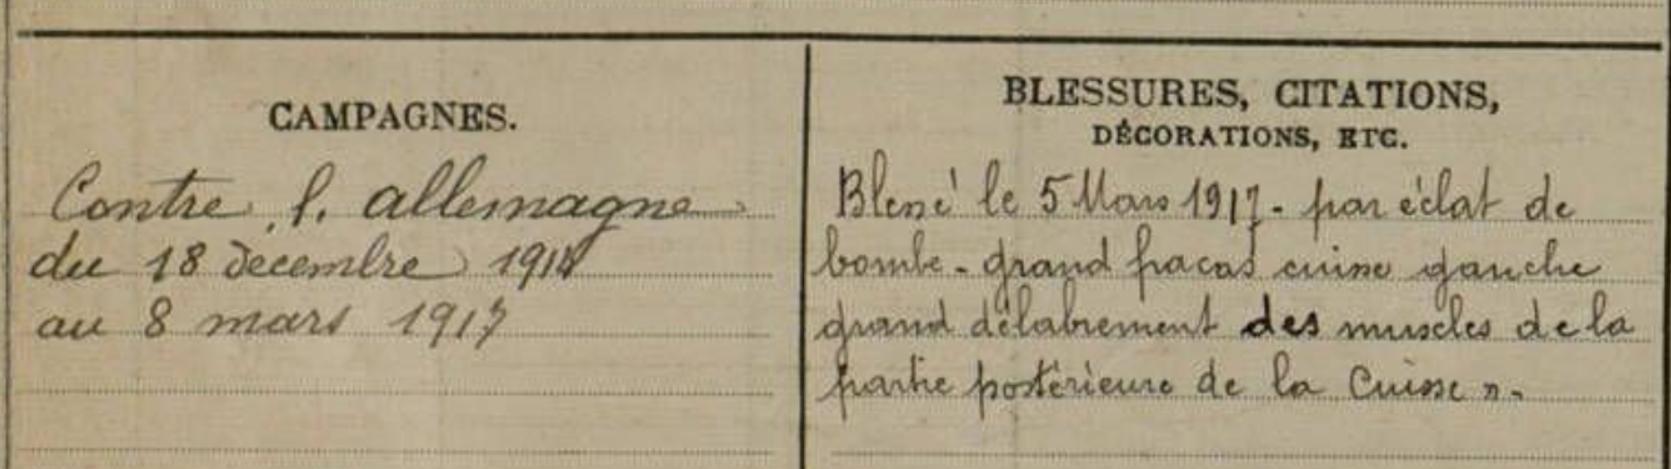 CAMPAGNES.
Contre l. allemagne
du 18 décembre 1914
au 8 mars 1917
BLESSURES, CITATIONS,
DÉCORATIONS, ETC.
Blessé le 5 Mars 1917. par éclat de
bombe - grand fracas cuisse gauche
grand délabrement des muscles de la
partie postérieure de la Cuisse ".